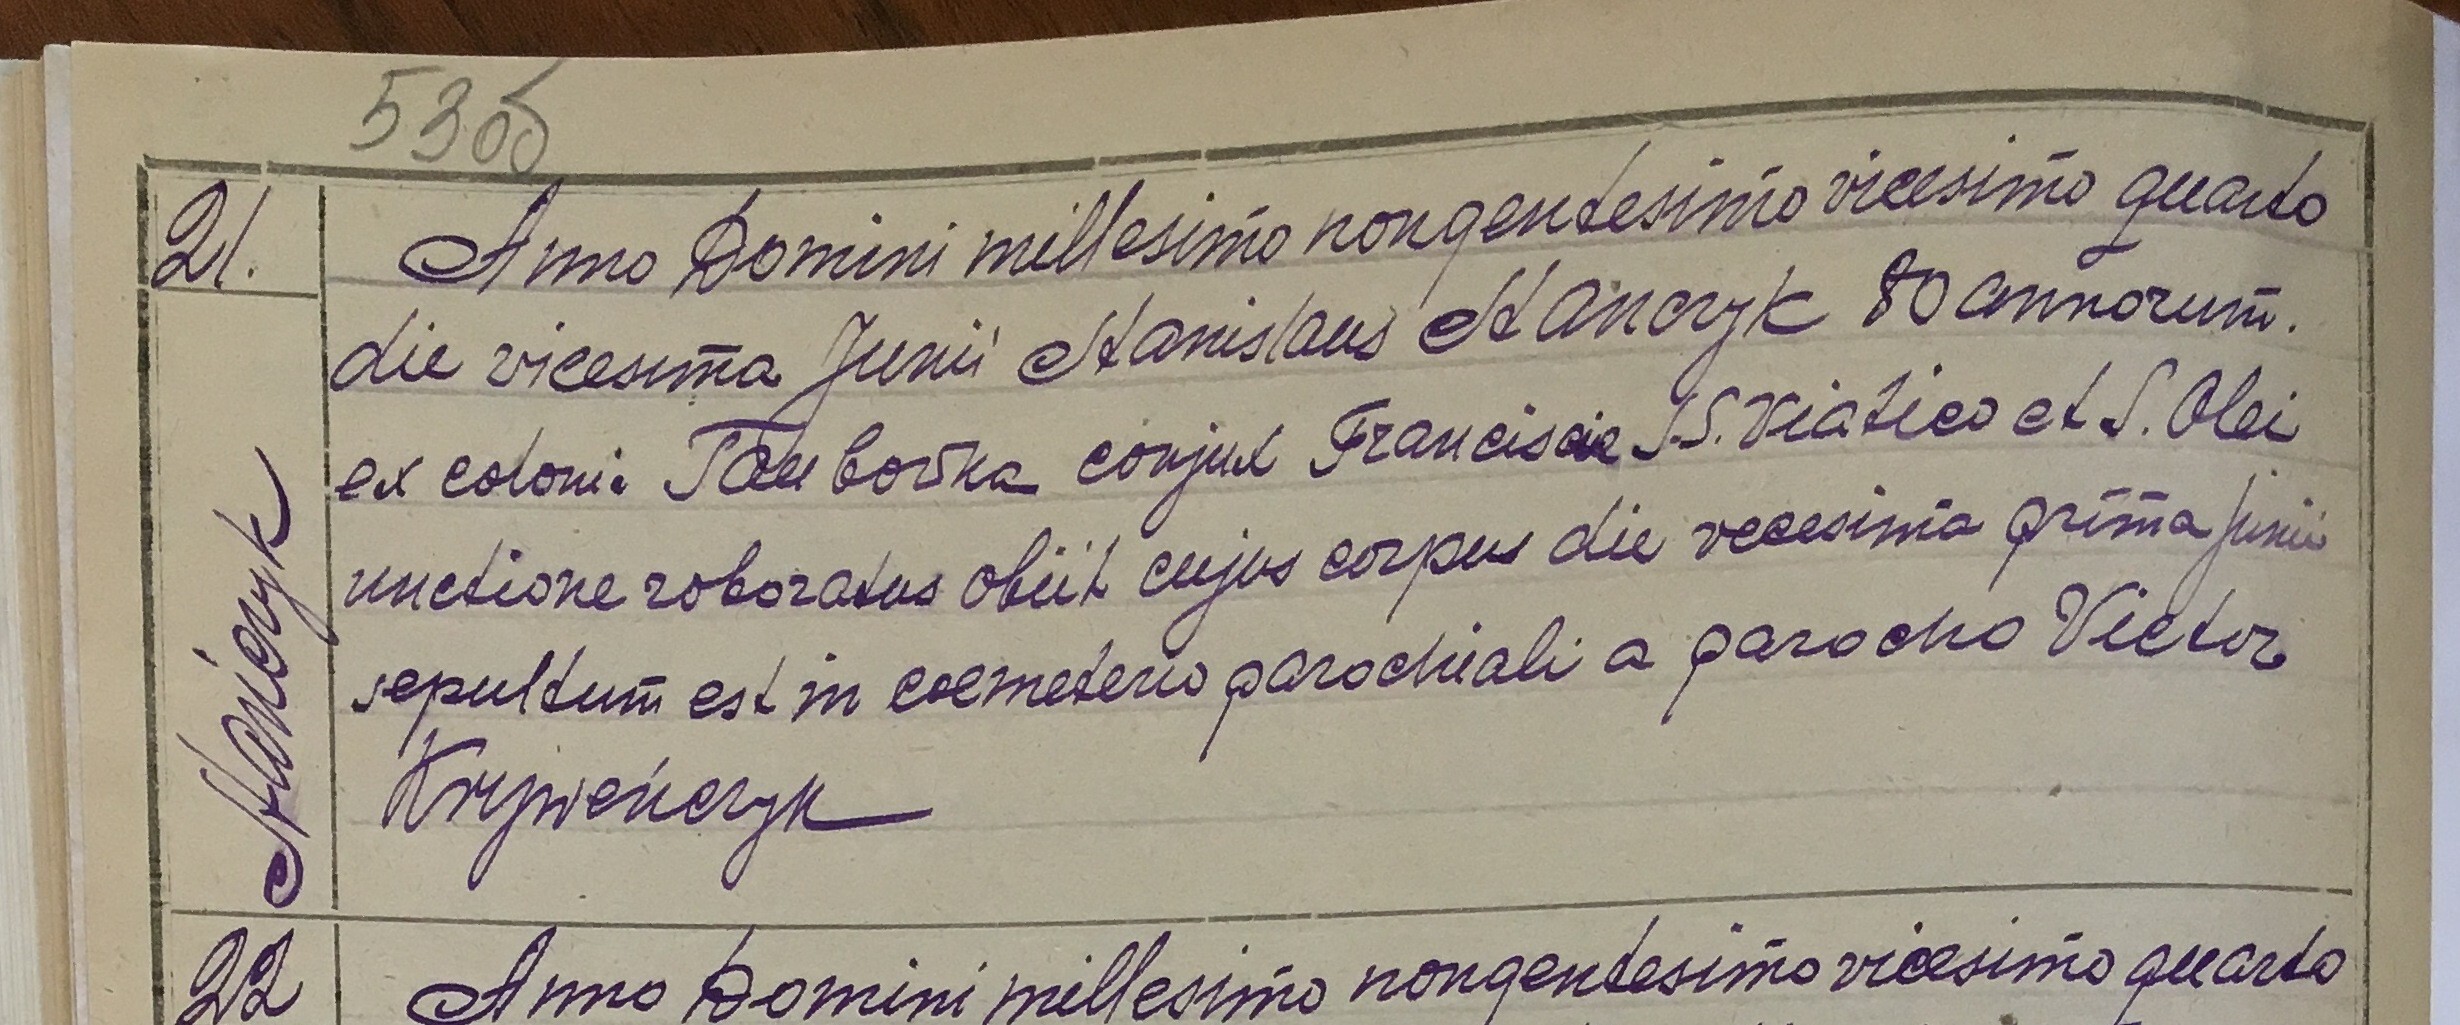 53об
21.
Anno Domini millesimo nongentesimo vicesimo quarto
die vicesima Junii Stanislaus Stanczyk 80 annorum.
ex coloni. conjux Franciscae S.S. Viatico et S. Olei
unctione roboratus obiit cujus corpus die vecesima prima junii
sepultum est in coemeterio parochiali a parocho Victor
Krzywenczyk
Stańczyk
22
Anno Domini millesimo nongentesimo vicesimo quarto